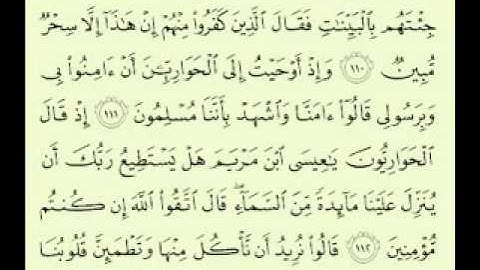 جِئْتَهُم بِٱلْبَيِّنَـٰتِ فَقَالَ ٱلَّذِينَ كَفَرُوا۟ مِنْهُمْ إِنْ هَـٰذَآ إِلَّا سِحْرٌ
مُّبِينٌ ١١٠ وَإِذْ أَوْحَيْتُ إِلَى ٱلْحَوَارِيِّـۧنَ أَنْ ءَامِنُوا۟ بِى
وَبِرَسُولِى قَالُوٓا۟ ءَامَنَّا وَٱشْهَدْ بِأَنَّنَا مُسْلِمُونَ ١١١ إِذْ قَالَ
ٱلْحَوَارِيُّونَ يَـٰعِيسَى ٱبْنَ مَرْيَمَ هَلْ يَسْتَطِيعُ رَبُّكَ أَن
يُنَزِّلَ عَلَيْنَا مَآئِدَةً مِّنَ ٱلسَّمَآءِ ۖ قَالَ ٱتَّقُوا۟ ٱللَّهَ إِن كُنتُم
مُّؤْمِنِينَ ١١٢ قَالُوا۟ نُرِيدُ أَن نَّأْكُلَ مِنْهَا وَتَطْمَئِنَّ قُلُوبُنَا